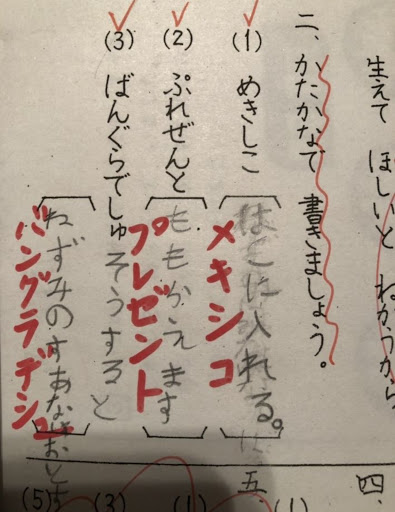 生えて ほしいと ねがうから
二、かたかなで 書きましょう。
(1) めきしこ
はこに入れる。
メキシコ
(2) ぷれぜんと
ももかえます
プレゼント
(3) ばんぐらでしゅ
そうすると
ねずみのすあな
バングラデシュ
四、
(1)
五、
(1)
(3)
(5)